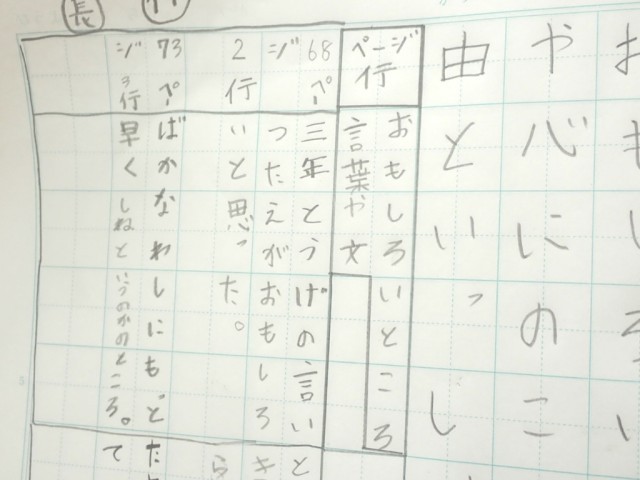 や心にのこ
由といっし
ページ
行
おもしろいところ
言葉や文
68ペ
ジ
2行
三年とうげの言い
つたえがおもしろ
いと思った。
73ペ
ジ3行
ばかなわしにもど
早くしねというのかのところ。
と
き
ら
た
て
長